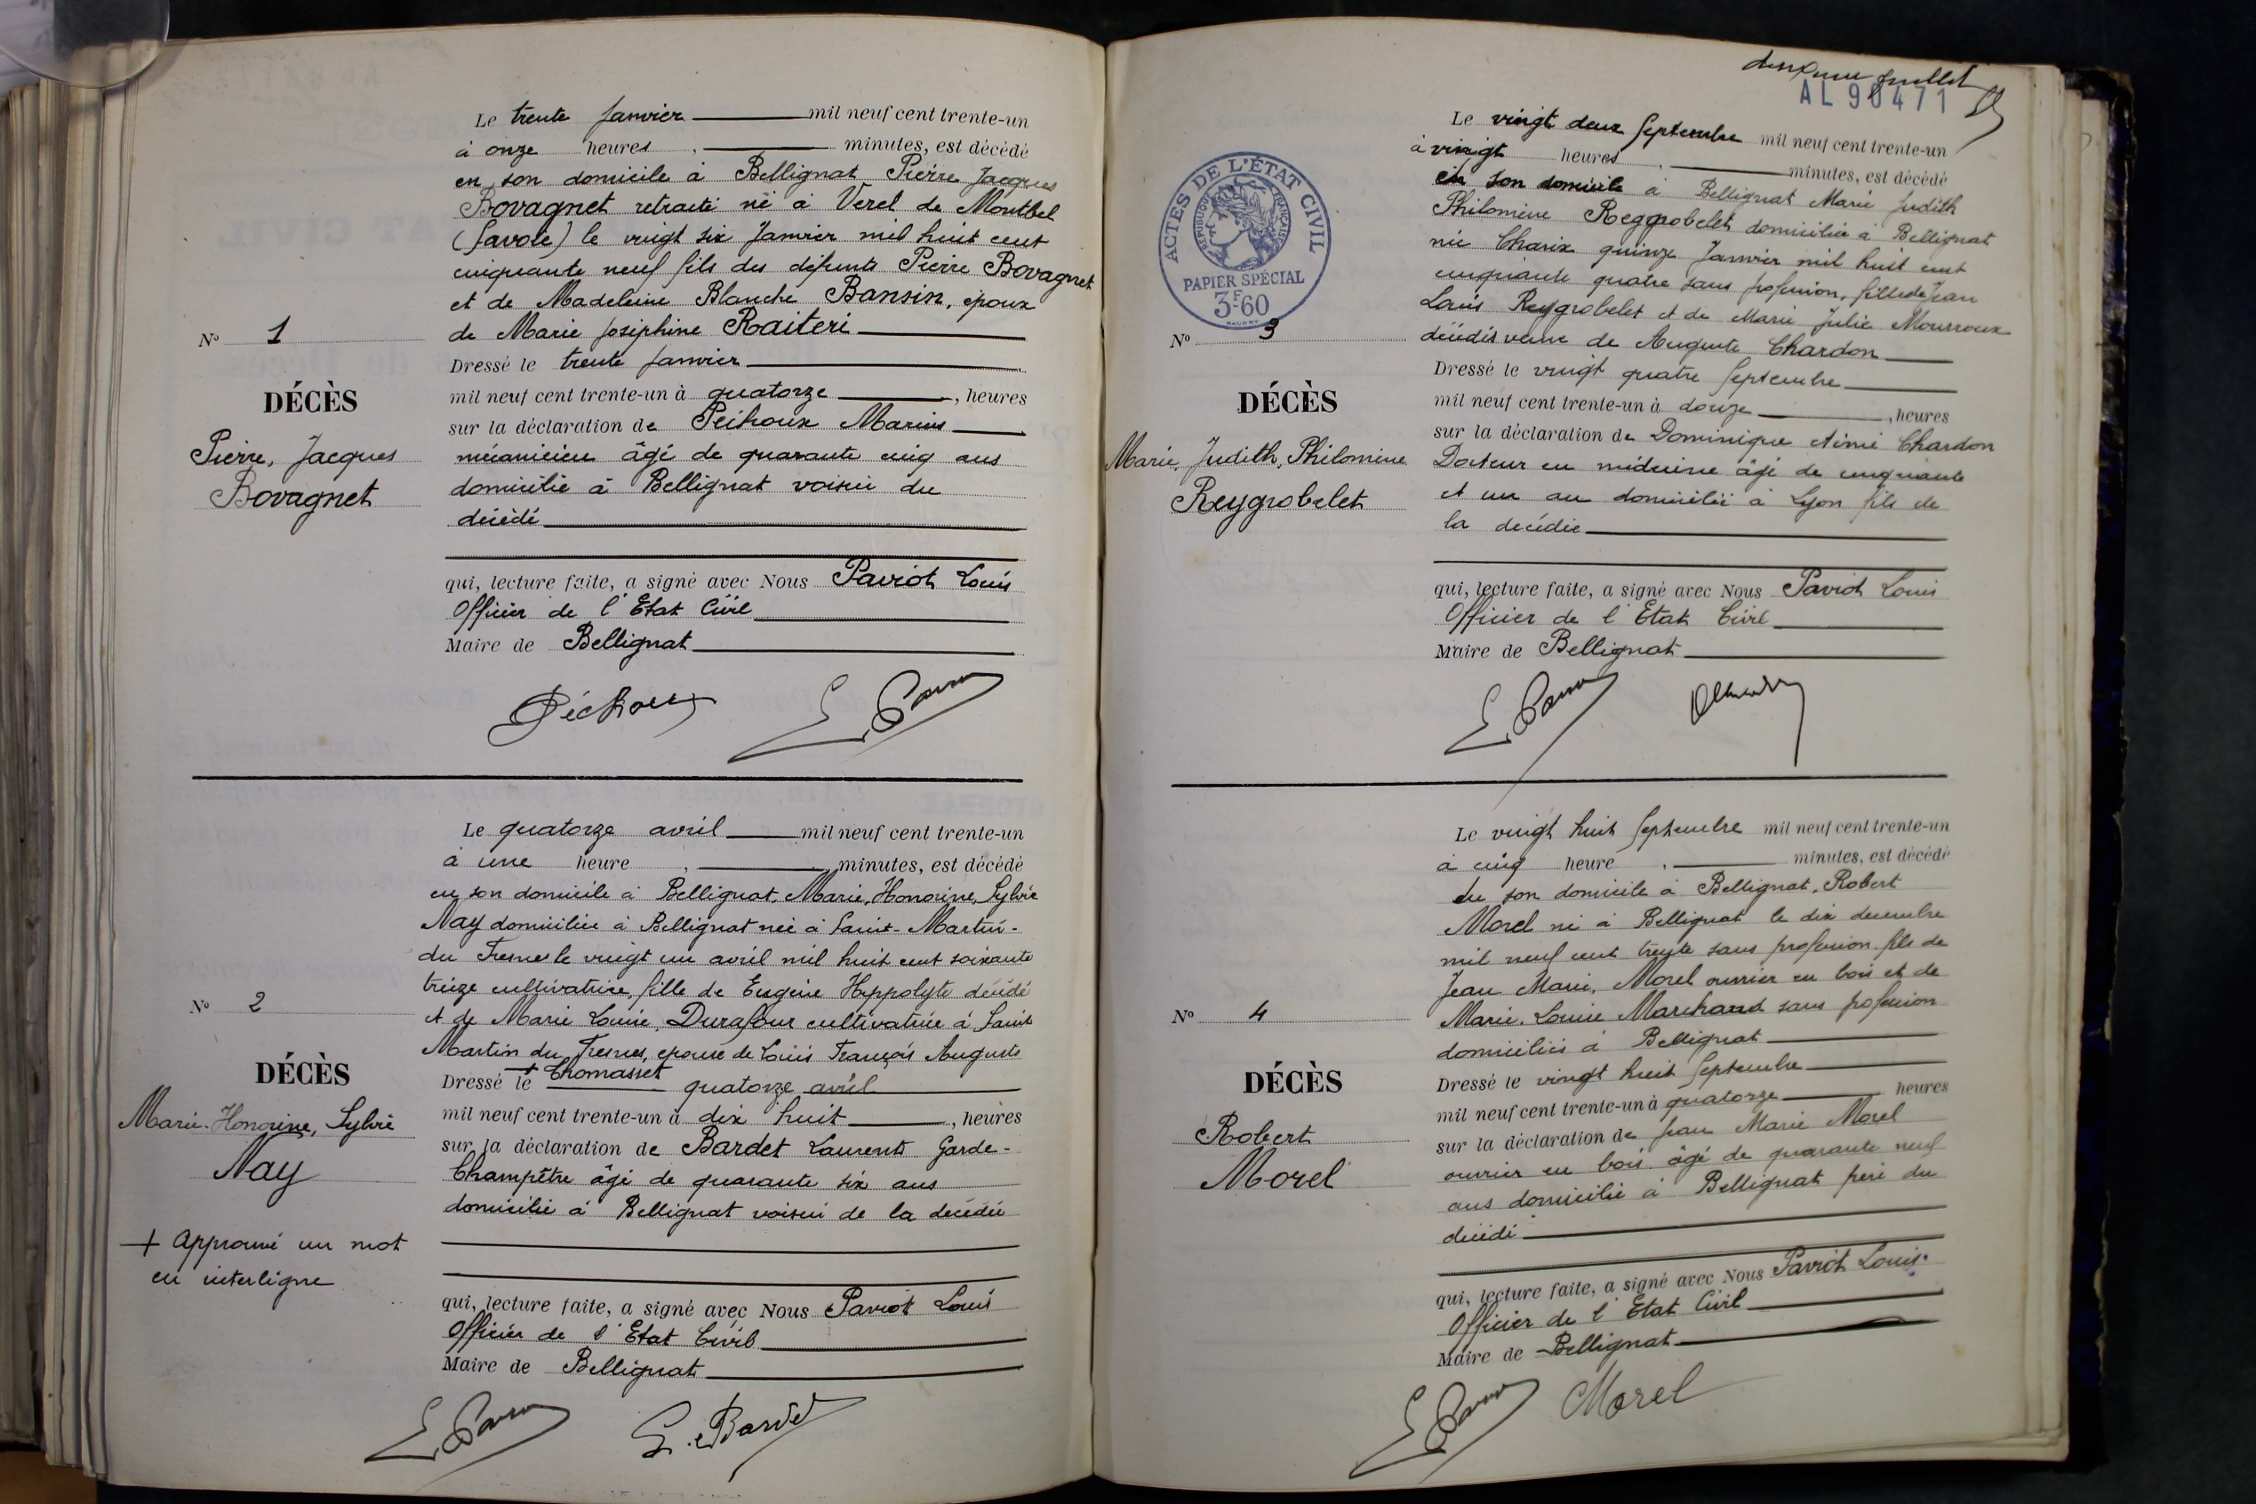 Le trente Janvier mil neuf cent trente-un
à onze heures, minutes, est décédé
en son domicile à Bellignat Pierre Jacques
Bovagnet retraité né à Verel de Montbel
(Savoie) le vingt six Janvier mil huit cent
cinquante neuf fils des défunts Pierre Bovagnet
et de Madeleine Blanche Bansin, époux
de Marie Joséphine Raiteri
Dressé le trente Janvier
mil neuf cent trente-un à quatorze, heures
sur la déclaration de Marius
mécanicien âgé de quarante cinq ans
domicilié à Bellignat voisin du
décédé
qui, lecture faite, a signé avec Nous Paviot Louis
Officier de l'Etat Civil
Maire de Bellignat
N° 1
DÉCÈS
Pierre, Jacques
Bovagnet
Le quatorze avril mil neuf cent trente-un
à une heure, minutes, est décédé
en son domicile à Bellignat, Marie, Honorine, Sylvie
Nay domiciliée à Bellignat née à Saint-Martin-
du Fresnes le vingt un avril mil huit cent soixante
treize cultivatrice, fille de Eugène Hyppolyte décédé
et de Marie Louise, Durafour cultivatrice à Saint
Martin du Fresnes, épouse de Louis François Auguste
+ Thomasset
Dressé le quatorze avril
mil neuf cent trente-un à dix huit, heures
sur la déclaration de Bardet Laurent Garde-
Champêtre âgé de quarante six ans
domicilié à Bellignat voisin de la décédée
qui, lecture faite, a signé avec Nous Paviot Louis
Officier de l'Etat Civil
Maire de Bellignat
L. Bardet
N° 2
DÉCÈS
Marie-Honorine, Sylvie
Nay
+ Approuvé un mot
en interligne
deuxième feuillet
AL 90471
ACTES DE L'ÉTAT CIVIL
RÉPUBLIQUE FRANÇAISE
PAPIER SPÉCIAL
3F60
Le vingt deux Septembre mil neuf cent trente-un
à vingt heures, minutes, est décédé
en son domicile à Bellignat Marie Judith
Philomène Reygrobelet domiciliée à Bellignat
née Charix quinze Janvier mil huit cent
cinquante quatre sans profession, fille de Jean
Louis Reygrobelet et de Marie Julie Mourroux
décédés veuve de Auguste Chardon
Dressé le vingt quatre Septembre
mil neuf cent trente-un à douze, heures
sur la déclaration de Dominique Aimé Chardon
Docteur en médecine âgé de cinquante
et un an domicilié à Lyon fils de
la décédée
qui, lecture faite, a signé avec Nous Paviot Louis
Officier de l'Etat Civil
Maire de Bellignat
N° 3
DÉCÈS
Marie, Judith, Philomène
Reygrobelet
Le vingt huit Septembre mil neuf cent trente-un
à cinq heure, minutes, est décédé
en son domicile à Bellignat, Robert
Morel né à Bellignat le dix décembre
mil neuf cent treize sans profession fils de
Jean Marie, Morel ouvrier en bois et de
Marie, Louise Marchand sans profession
domiciliés à Bellignat
Dressé le vingt huit Septembre
mil neuf cent trente-un à quatorze heures
sur la déclaration de Jean Marie Morel
ouvrier en bois âgé de quarante neuf
ans domicilié à Bellignat père du
décédé
qui, lecture faite, a signé avec Nous Paviot Louis
Officier de l'Etat Civil
Maire de Bellignat
Morel
N° 4
DÉCÈS
Robert
Morel